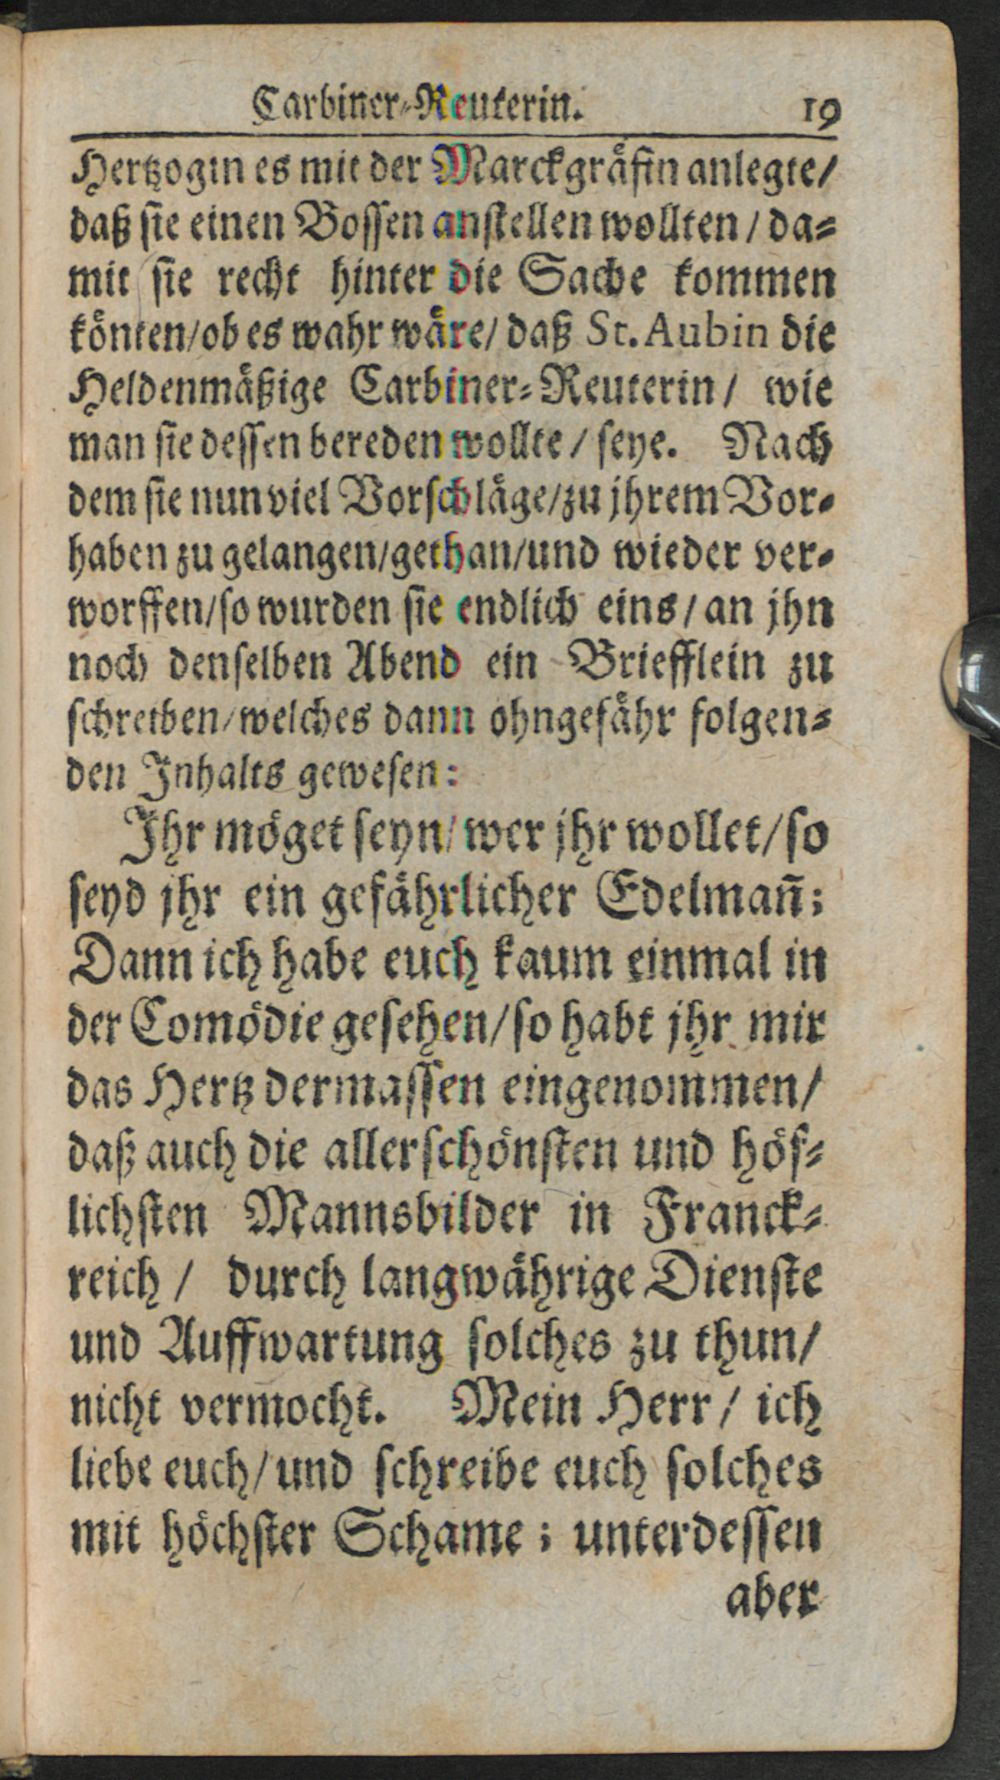 Carbiner-Reuterin. 19
Hertzogin es mit der Marckgräfin anlegte/
daß sie einen Bossen anstellen wollten / da-
mit sie recht hinter die Sache kommen
könten/ob es wahr wäre/ daß St. Aubin die
Heldenmäßige Carbiner-Reuterin/ wie
man sie dessen bereden wollte / seye. Nach
dem sie nun viel Vorschläge/zu jhrem Vor-
haben zu gelangen/gethan/und wieder ver-
worffen/so wurden sie endlich eins/ an jhn
noch denselben Abend ein Briefflein zu
schreiben/welches dann ohngefähr folgen-
den Inhalts gewesen:
Ihr möget seyn/ wer jhr wollet/so
seyd jhr ein gefährlicher Edelmañ;
Dann ich habe euch kaum einmal in
der Comödie gesehen/so habt jhr mir
das Hertz dermassen eingenommen/
daß auch die allerschönsten und höf-
lichsten Mannsbilder in Franck-
reich / durch langwährige Dienste
und Auffwartung solches zu thun/
nicht vermocht. Mein Herr/ ich
liebe euch/und schreibe euch solches
mit höchster Schame; unterdessen
aber